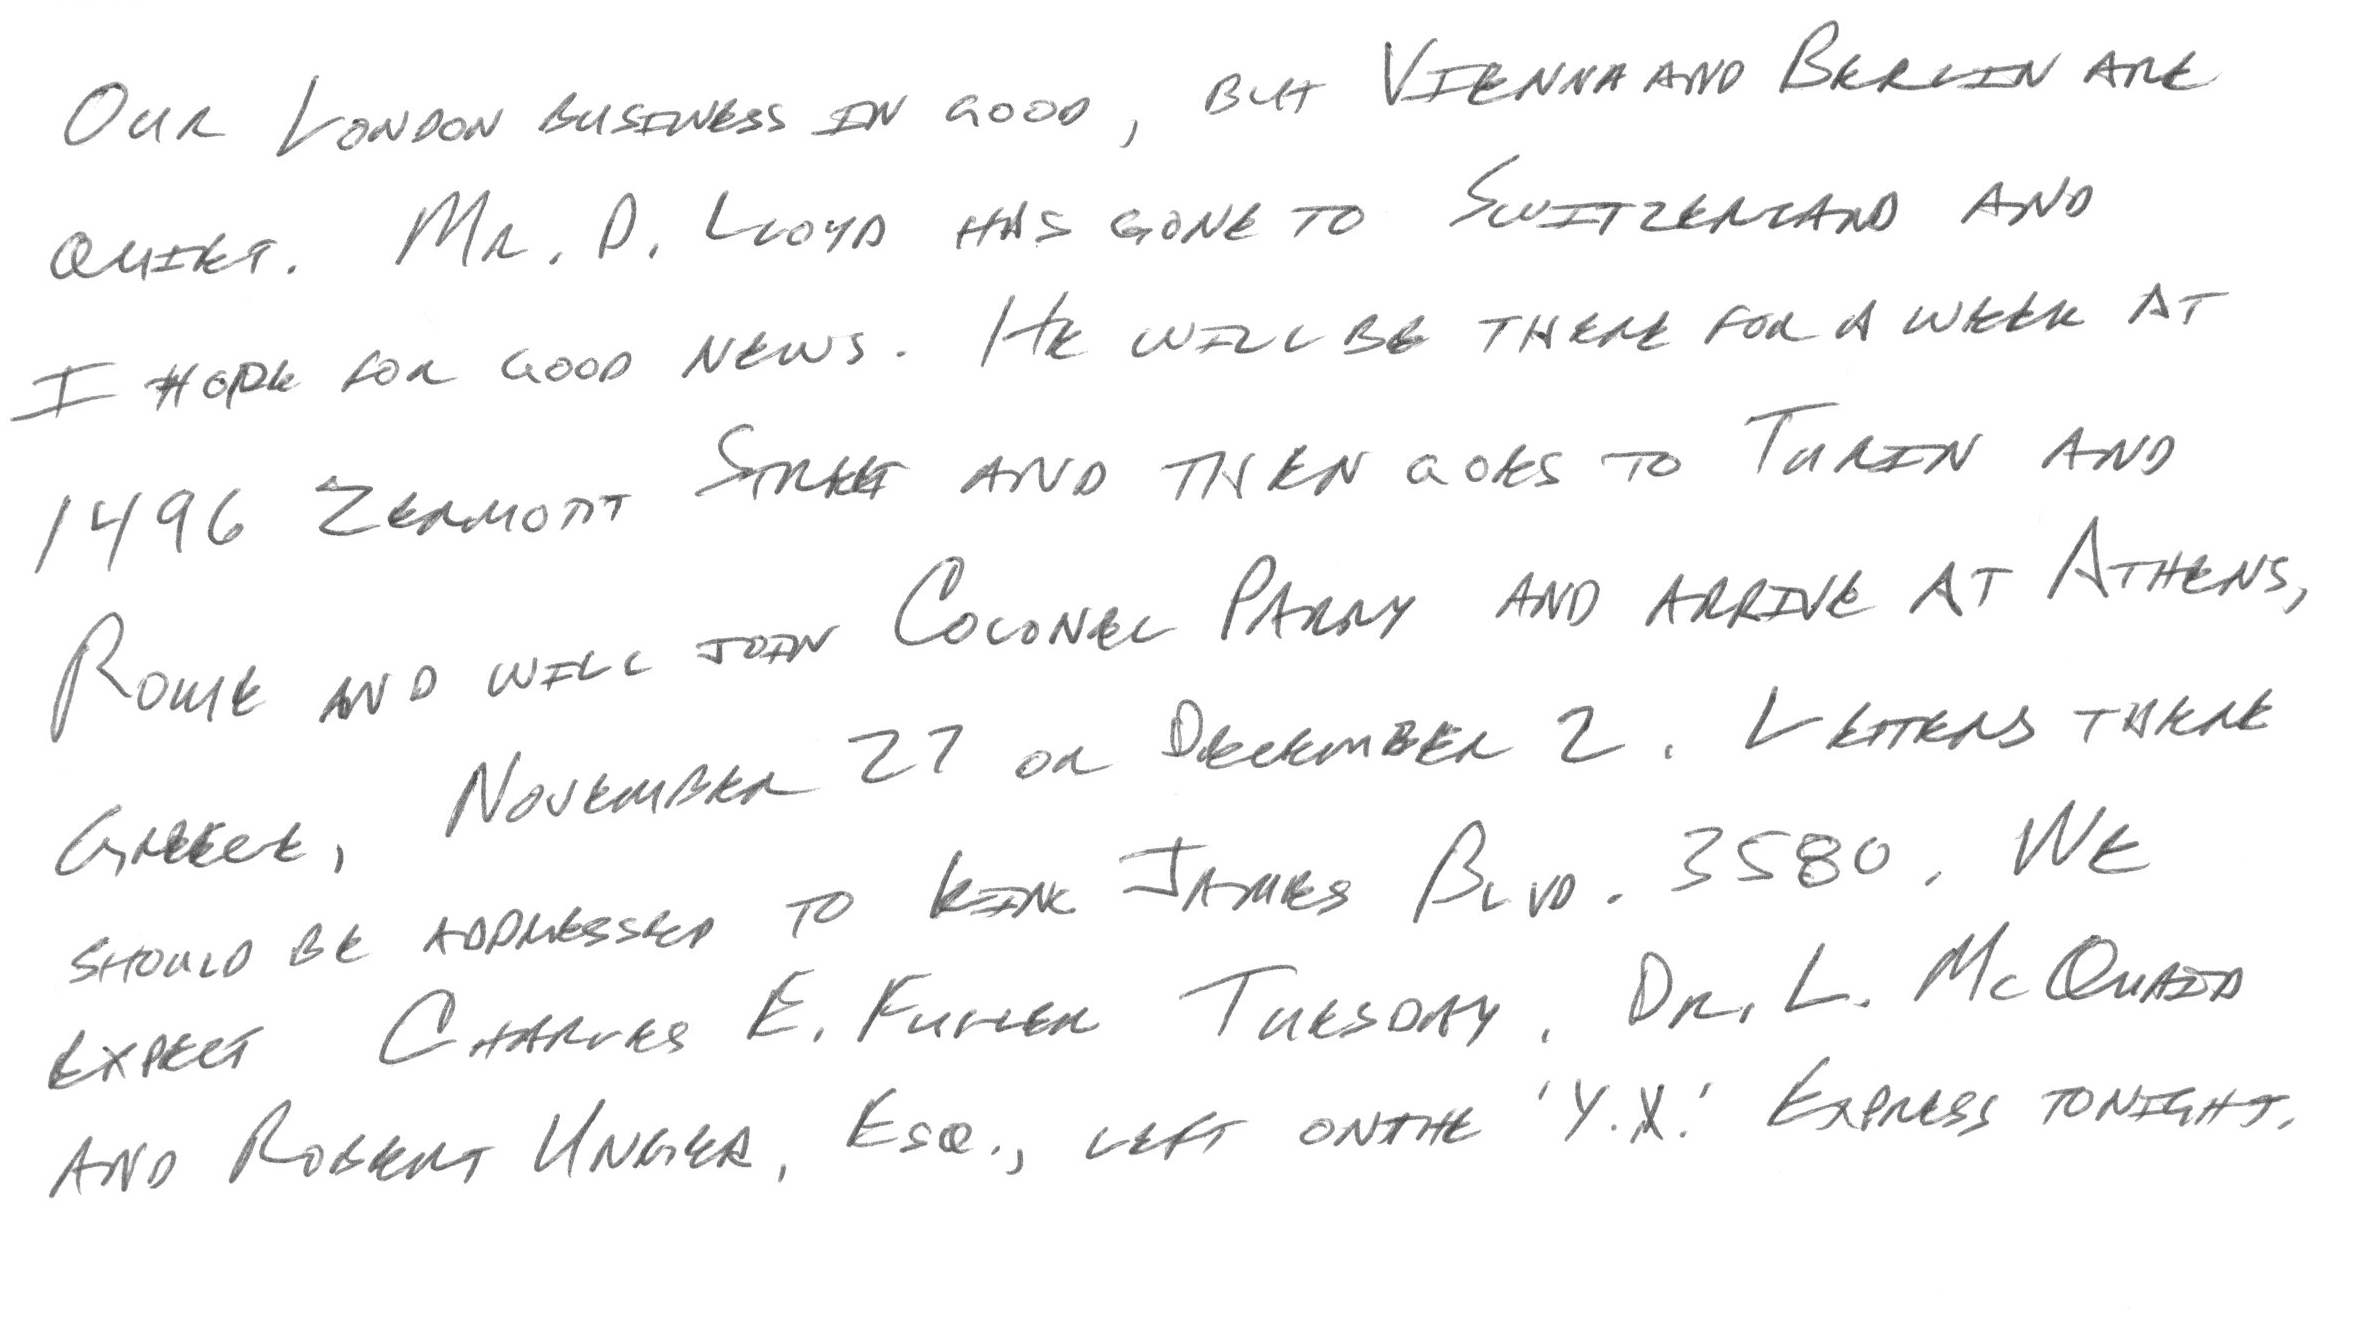 Our London business in good, but Vienna and Berlin are
quiet. Mr. D. Lloyd has gone to Switzerland and
I hope for good news. He will be there for a week at
1496 Zermott Street and then goes to Turin and
Rome and will join Colonel Parry and arrive at Athens,
Greece, November 27 or December 2. Letters there
should be addressed to King James Blvd. 3580. We
expect Charles E. Fuller Tuesday. Dr. L. McQuaid
and Robert Unger, Esq., left on the 'Y.X.' Express tonight.